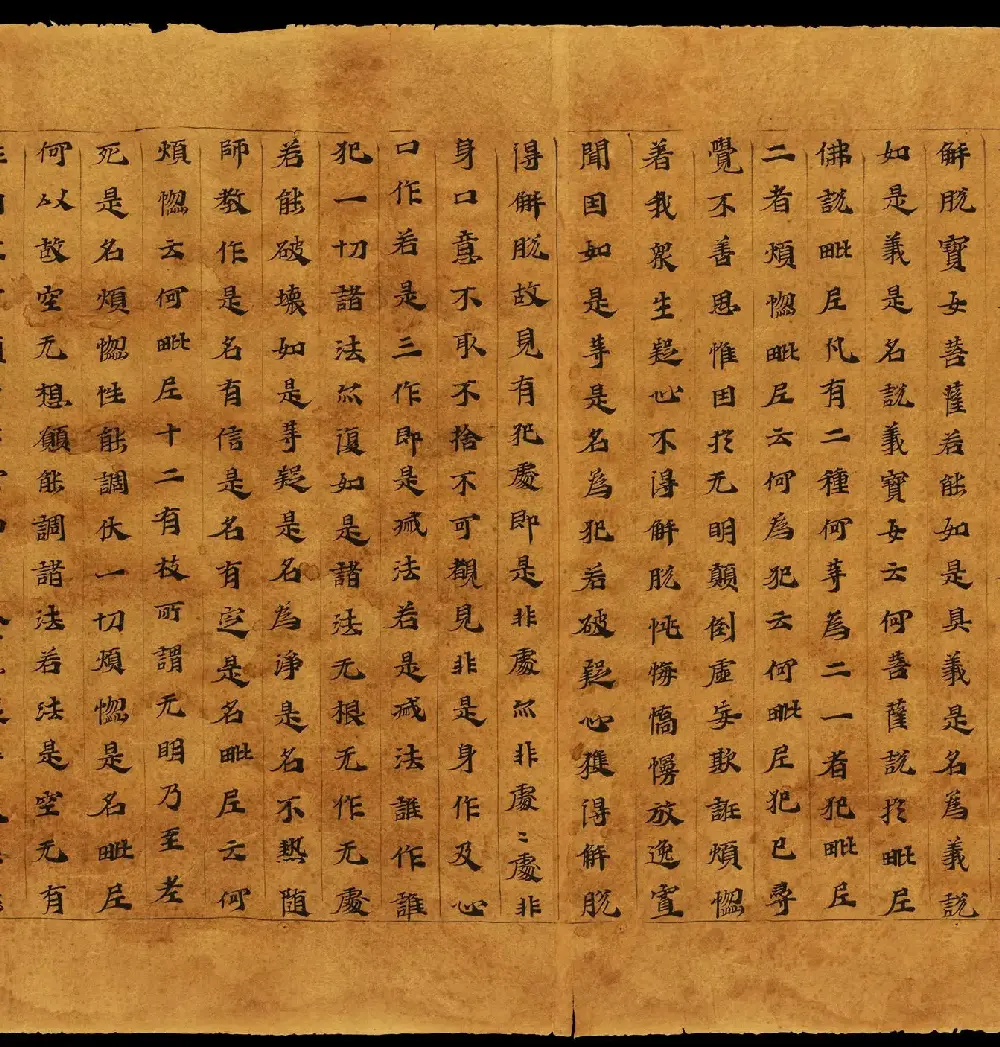 解脫寶女菩薩若能如是具義是名為義說
如是義是名說義寶女云何菩薩說扵毗尼
佛說毗尼凡有二種何等為二一者犯毗尼
二者煩惱毗尼云何為犯云何毗尼犯已尋
覺不善思惟因扵无明顛倒虛妄欺誑煩惱
著我衆生疑心不得解脫恠悔憍慢放逸寡
聞因如是等是名為犯若破疑心獲得解脫
得解脫故見有犯處即是非處亦非處〻處非
身口意不取不捨不可覩見非是身作及心
口作若是三作即是滅法若是滅法誰作誰
犯一切諸法亦復如是諸法无根无作无處
若能破壞如是等疑是名為淨是名不熱随
師教作是名有信是名有定是名毗尼云何
煩惱云何毗尼十二有枝所謂无明乃至老
死是名煩惱性能調伏一切煩惱是名毗尼
何以故空无想願能調諸法若法是空无有